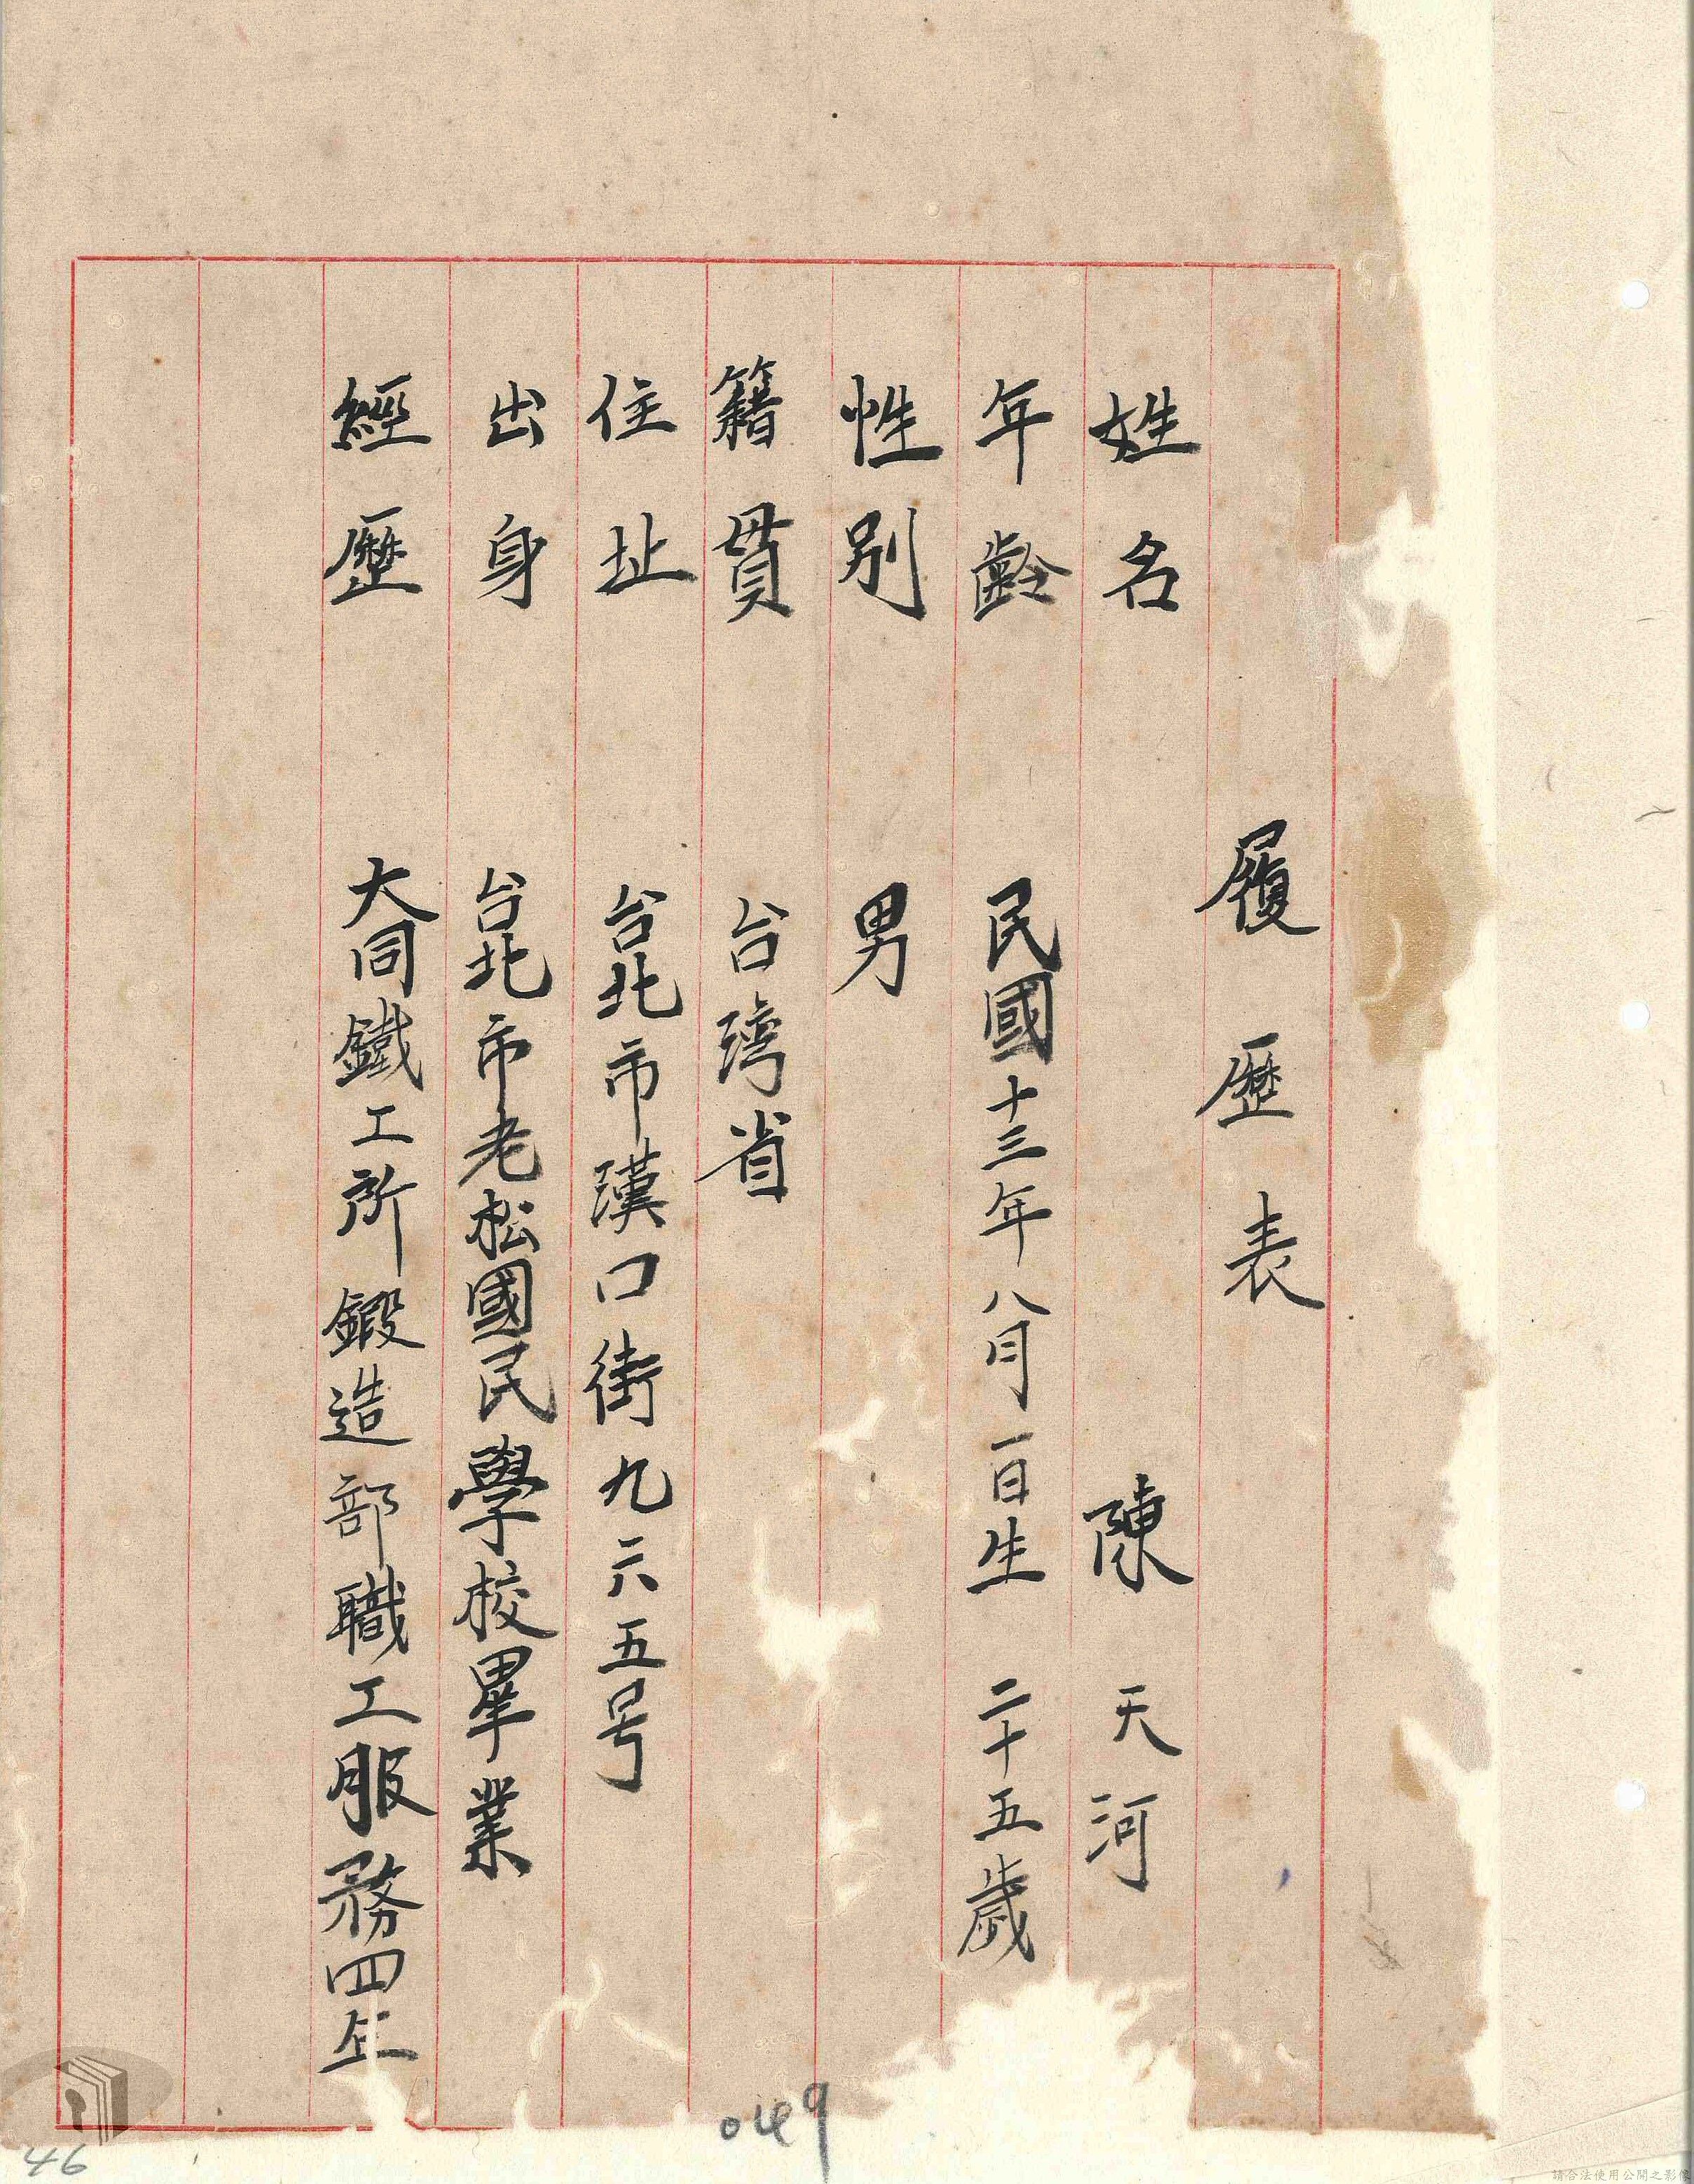 履歷表
姓名 陳天河
年齡 民國十三年八月一日生 二十五歲
性別 男
籍貫 台灣省
住址 台北市漢口街九六五号
出身 台北市老松國民學校畢業
經歷 大同鐵工所鍛造部職工服務四年
049
46
請合法使用公開之影像